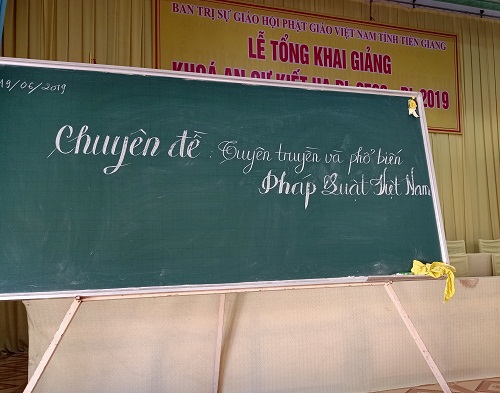 BAN TRỊ SỰ GIÁO HỘI PHẬT GIÁO VIỆT NAM TỈNH TIỀN GIANG
LỄ TỔNG KHAI GIẢNG
KHOÁ AN CƯ KIẾT HẠ PL 2019
19/06/2019
Chuyên đề : Tuyên truyền và phổ biến
Pháp Luật Việt Nam